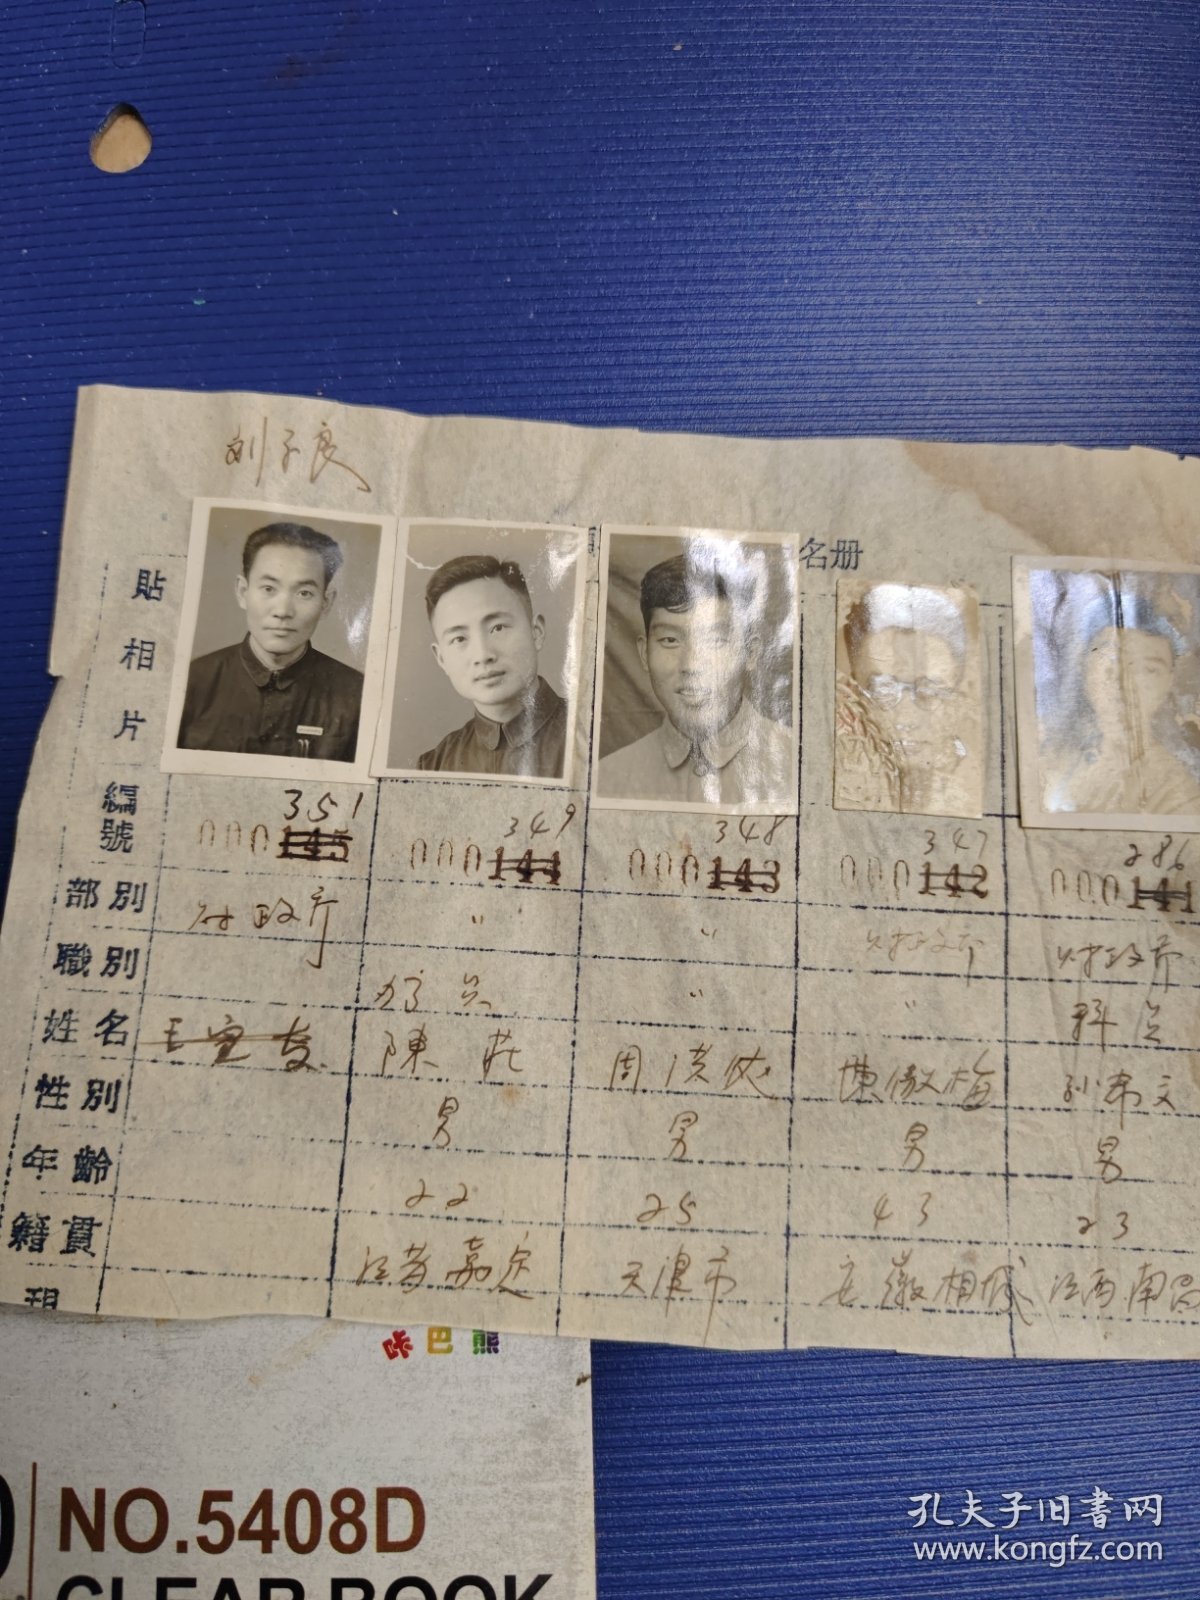 刘子良
名册
貼相片
編號 351 000145 349 000144 348 000143 347 000142 286 000141
部別 财政厅 〃 〃 财政厅 财政厅
職別 办公 〃 〃 科员
姓名 王宣 陳莊 周 陳傲梅 孙韦文
性別 男 男 男 男
年齡 22 25 43 23
籍貫 江苏嘉定 天津市 安徽桐城 江西南昌
咔巴熊
NO.5408D
CLEAR BOOK
孔夫子旧书网
www.kongfz.com